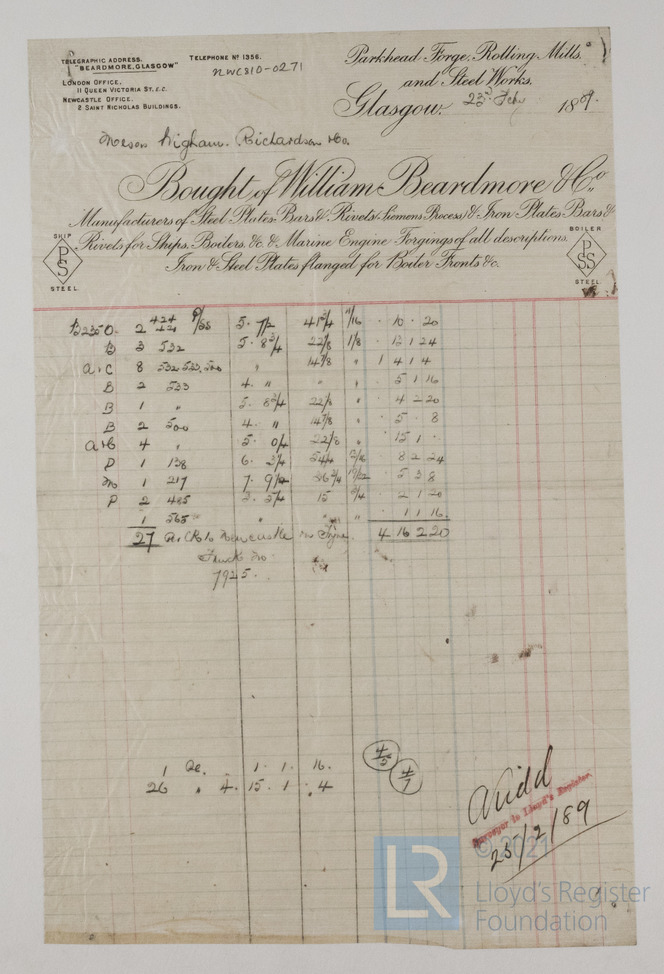 TELEGRAPHIC ADDRESS. "BEARDMORE, GLASGOW"
TELEPHONE Nº 1356.
NWC810-0271
LONDON OFFICE,
11 QUEEN VICTORIA ST, E.C.
NEWCASTLE OFFICE.
2 SAINT NICHOLAS BUILDINGS.
Parkhead Forge, Rolling Mills,
and Steel Works.
Glasgow, 23rd Feby 1889.
Messrs Wigham. Richardson & Co.
Bought of William Beardmore & Co.,
Manufacturers of Steel Plates, Bars & Rivets Siemens Process & Iron Plates Bars &
Rivets for Ships, Boilers, &c. & Marine Engine Forgings of all descriptions.
Iron & Steel Plates flanged for Boiler Fronts &c.
SHIP
PS
STEEL.
BOILER
PSS
STEEL.
B 2 5. 7/2 41 3/4 10 20
B 3 532 5. 8 3/4 22/8 1/8 12 1 24
A+C 8 14 7/8 " 1 4 1 4
B 2 533 4. " " " 5 1 16
B 1 " 5. 8 3/4 22/8 " 4 2 20
B 2 500 4. " 14 7/8 " 5 8
4 " 5. 0/4 22/8 " 15 1
P 1 138 6. 3/4 54/4 8 2 24
M 1 217 7. 5 3 8
P 2 485 15 3/4 2 1 20
1 565 " " " 1 1 16
27 to Newcastle on Tyne 4 16 2 20
Truck No
7925.
1 Pl. 1. 1. 16.
26 " 4. 15. 1. 4
4/5
4/7
Surveyor to Lloyd's Register.
25/2/89
LR
© 2021
Lloyd's Register
Foundation